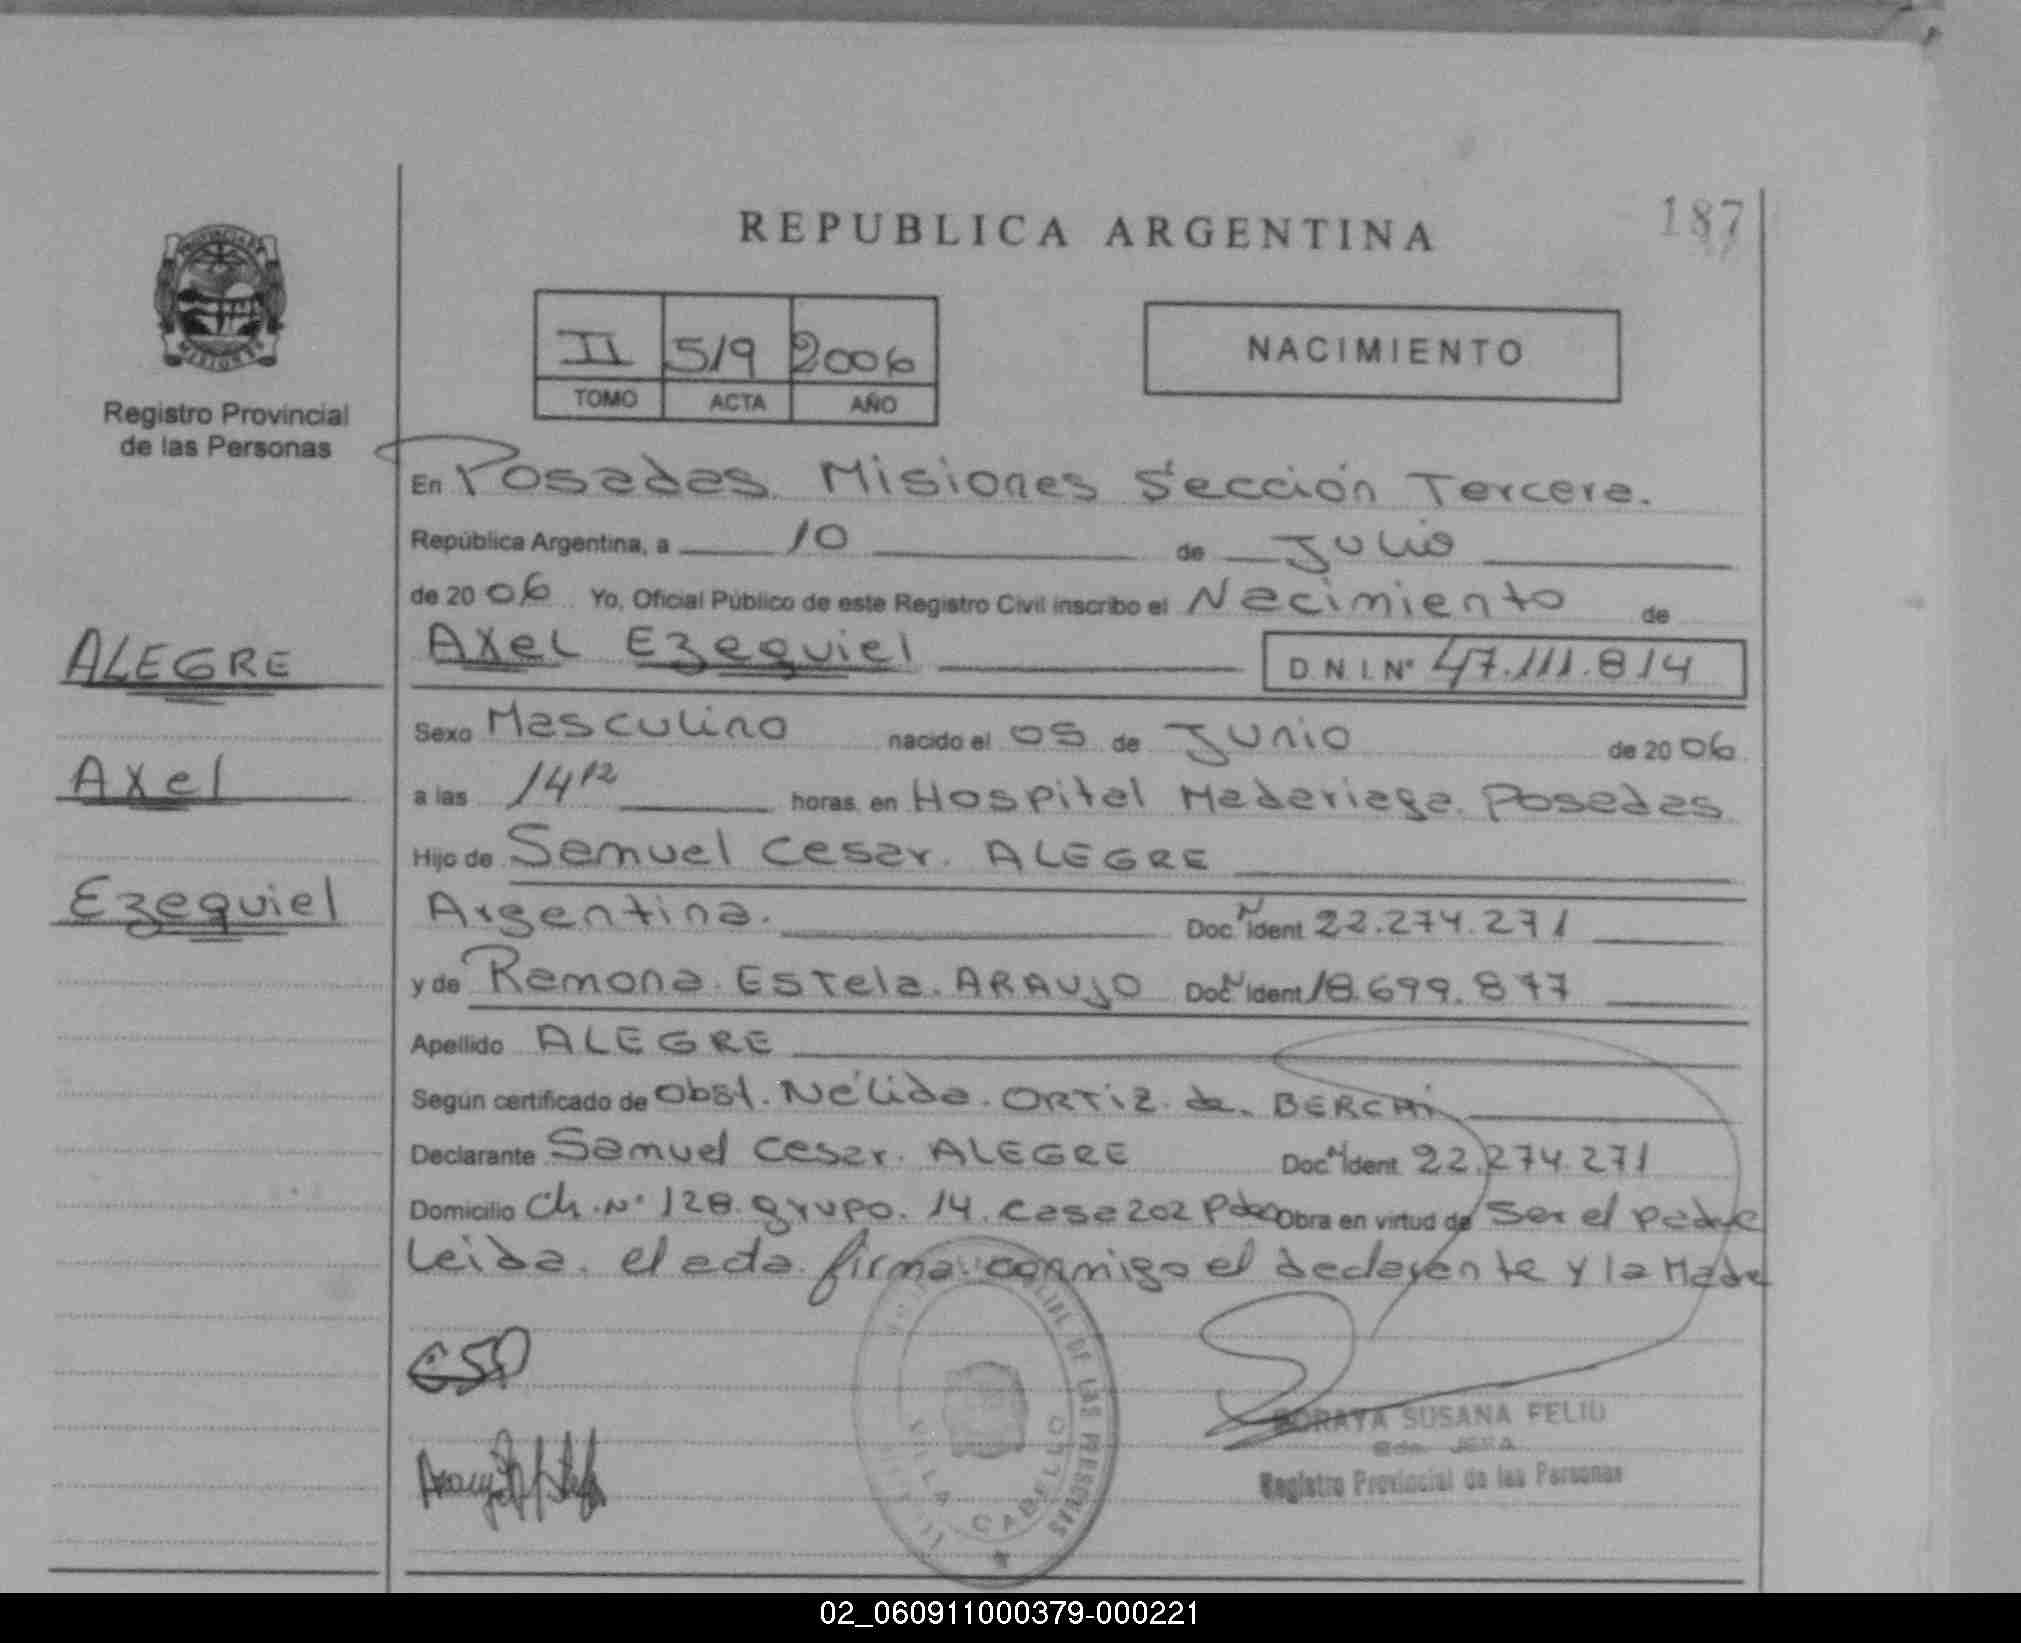 REPUBLICA ARGENTINA
187
PROVINCIA DE
MISIONES
Registro Provincial
de las Personas
II 519 2006
TOMO ACTA AÑO
NACIMIENTO
En Posadas. Misiones Sección Tercera.
República Argentina, a 10 de Julio
de 20 06 Yo, Oficial Público de este Registro Civil inscribo el Nacimiento de
Axel Ezequiel D.N.I. Nº 47.111.814
ALEGRE
Axel
Ezequiel
Sexo Masculino nacido el 05 de Junio de 20 06
a las 14 12 horas. en Hospital Madariaga. Posadas
Hijo de Samuel Cesar. ALEGRE
Argentina. Doc. N Ident 22.274.271
y de Ramona. Estela. ARAUJO Doc. N Ident 18.699.877
Apellido ALEGRE
Según certificado de Obst. Nélida. ORTIZ. de. BERCHI
Declarante Samuel Cesar. ALEGRE Doc. N Ident 22.274.271
Domicilio Ch. Nº 128. grupo. 14. casa 202 Pdas Obra en virtud de Ser el padre
Leida. el acta. firma. conmigo el declarante y la Madre
DE LAS PERSONAS
VILLA CABELLO
SORAYA SUSANA FELIU
Registro Provincial de las Personas
02_060911000379-000221